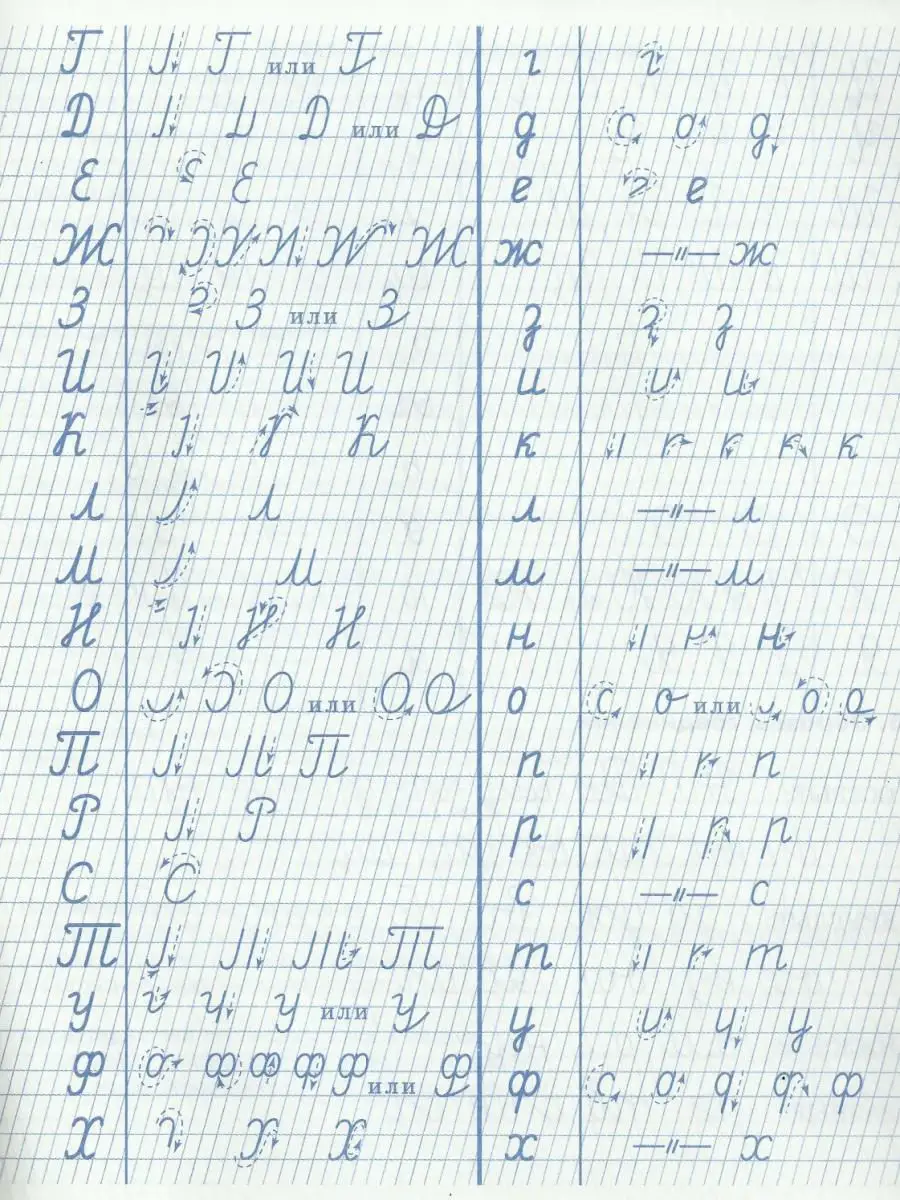 Г Г или Г г г
Д Д или Д д с о д
Е Е е г е
Ж Ж ж —"— ж
З З или З з з
И И и и и
К К к к к к
Л Л л —"— л
М М м —"— м
Н Н н н н
О О или О О о с о или о о
П П п г п
Р Р р р р
С С с —"— с
Т Т т г т
У У или У у и у
Ф о Ф или Ф ф с о ф
Х Х х —"— х